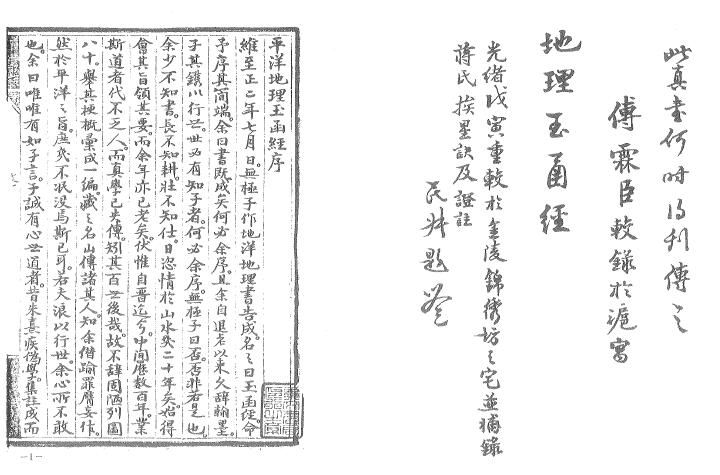 此真書何時得刋傳之
傅霖臣較錄於滬寓
地理玉函經
光緒戊寅重較於金陵錦繡坊之宅並補錄
蔣氏挨星訣及證註
民 題簽
平洋地理玉函經序
維至正二年七月日無極子作地洋地理書告成名之曰玉函經命
予序其簡端余曰書既成矣何必余序且余自退老以來久辭翰墨
子其鐫以行世世必有知子者何必余序無極子曰否否非若是也
余少不知書長不知耕壯不知仕日恣情於山水矣二十年矣始得
會其旨領其要而余年亦已老矣伏惟自晋迄今中間歷数百年業
斯道者代不乏人而真學已失傳矧其百世後哉故不辭固陋列圖
八十舉其梗概彙成一編藏之名山傳諸其人知余僭踰罪膺妄作
然於平洋之旨庶幾不泯没焉斯已耳若夫浪以行世余心所不敢
也余曰唯唯有如子言子誠有心世道者昔朱熹疾偽學集註成而
-1-